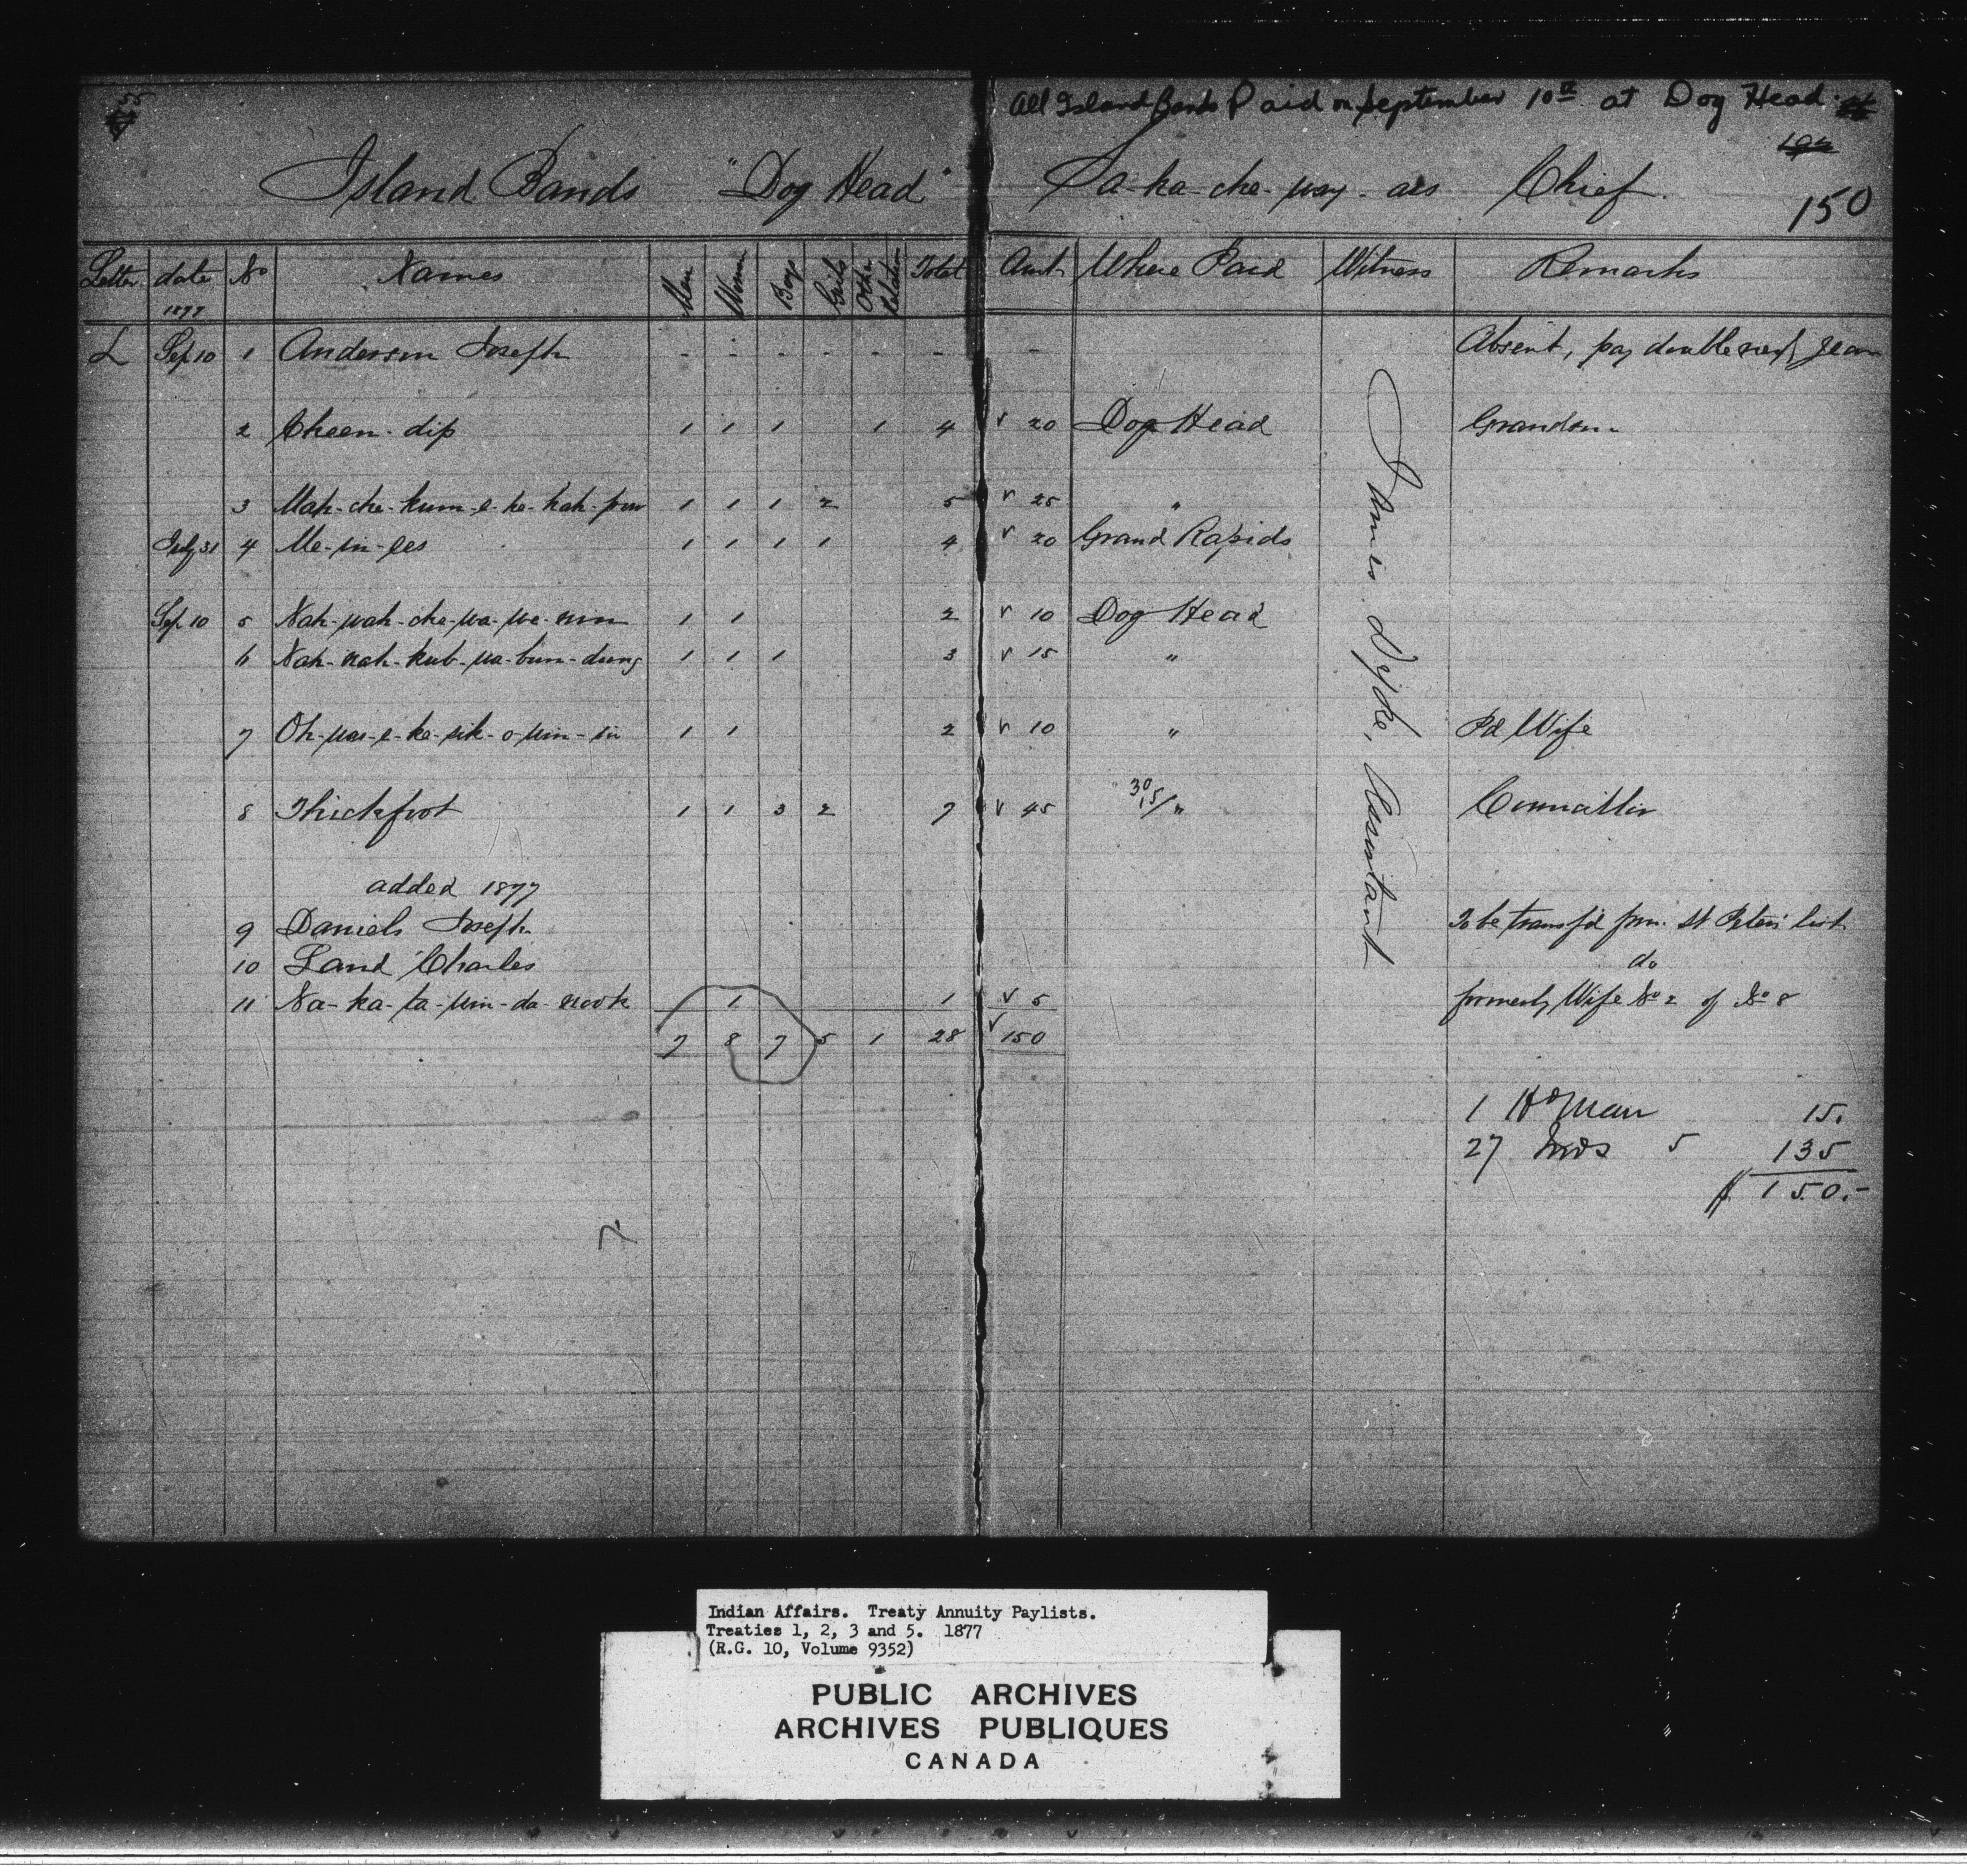 55
All Island Bands Paid on September 10th at Dog Head.
Island Bands "Dog Head" Sa-ka-che-way-aes Chief.
150
Letter date No Names Men Women Boys Girls Other Relation Total Amt Where Paid Witness Remarks
1877
L Sep 10 1 Anderson Joseph - - - - - - - Absent, pay double next year
2 Cheen-dip 1 1 1 1 4 √ 20 Dog Head Grandson
3 Mah-che-kum-e-ke-kah-pow 1 1 1 2 5 √ 25 "
July 31 4 Me-sin-ees 1 1 1 1 4 √ 20 Grand Rapids
Sep 10 5 Nah-wah-che-wa-we-nun 1 1 2 √ 10 Dog Head
6 Nah-nah-kub-wa-bun-dung 1 1 1 3 √ 15 "
7 Oh-was-e-ke-sik-o-win-in 1 1 2 √ 10 " Pd Wife
8 Thickfoot 1 1 3 2 7 √ 45 30/15/ " Councillor
James Dyke, Assistant
added 1877
9 Daniels Joseph To be transfd from St Peters list
10 Land Charles do
11 Na-ka-ta-win-da-nook 1 1 √ 5 formerly Wife No 2 of No 8
7 8 7 5 1 28 √ 150
1 Hd Man 15.
27 Inds 5 135
$ 150.-
7
Indian Affairs. Treaty Annuity Paylists.
Treaties 1, 2, 3 and 5. 1877
(R.G. 10, Volume 9352)
PUBLIC ARCHIVES
ARCHIVES PUBLIQUES
CANADA